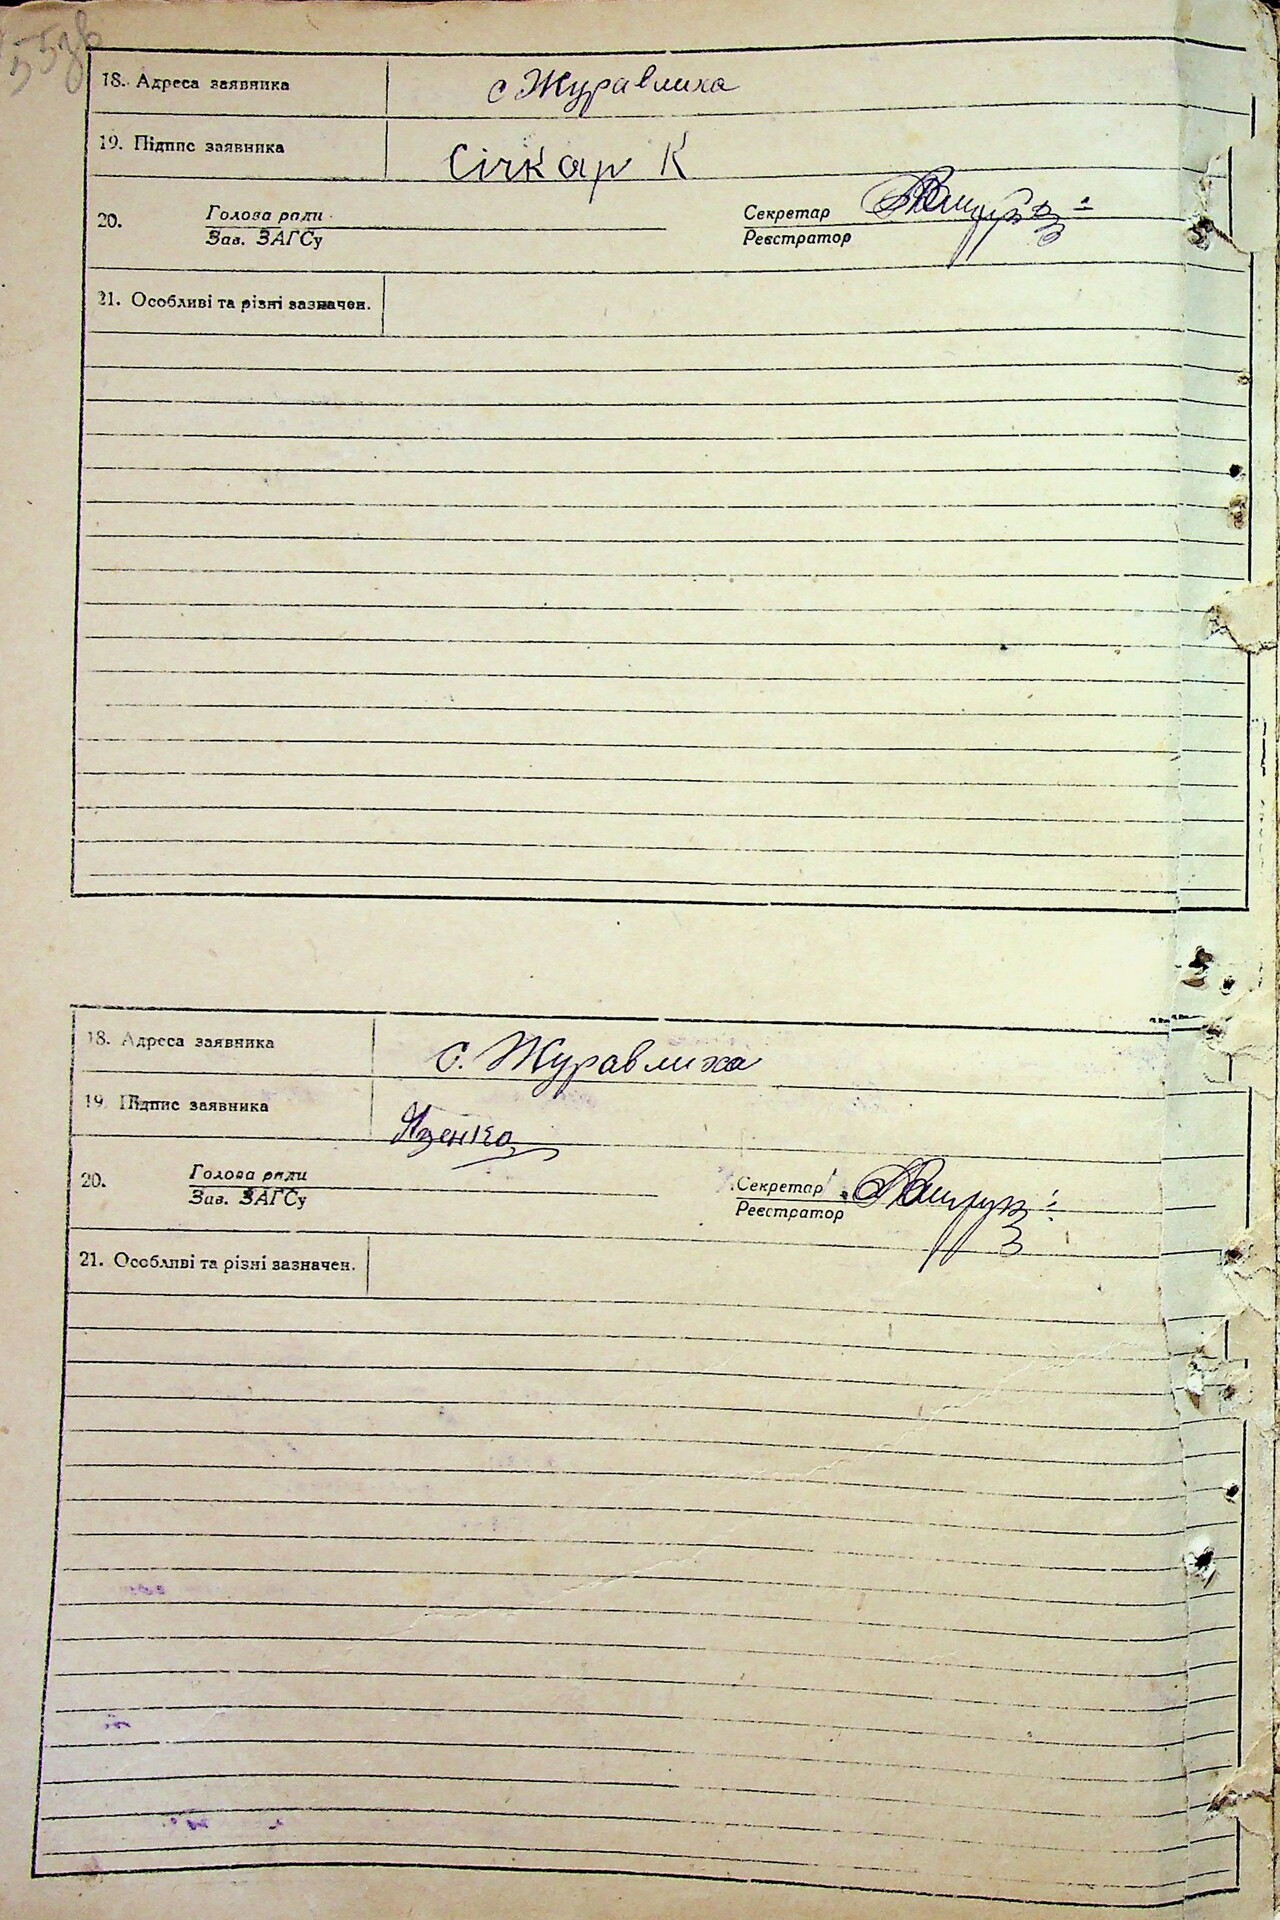 18. Адреса заявника с Журавлиха
19. Підпис заявника Січкар К
20. Голова ради Секретар
Зав. ЗАГСу Реєстратор
21. Особливі та різні зазначен.
18. Адреса заявника с. Журавлиха
19. Підпис заявника
20. Голова ради Секретар
Зав. ЗАГСу Реєстратор
21. Особливі та різні зазначен.